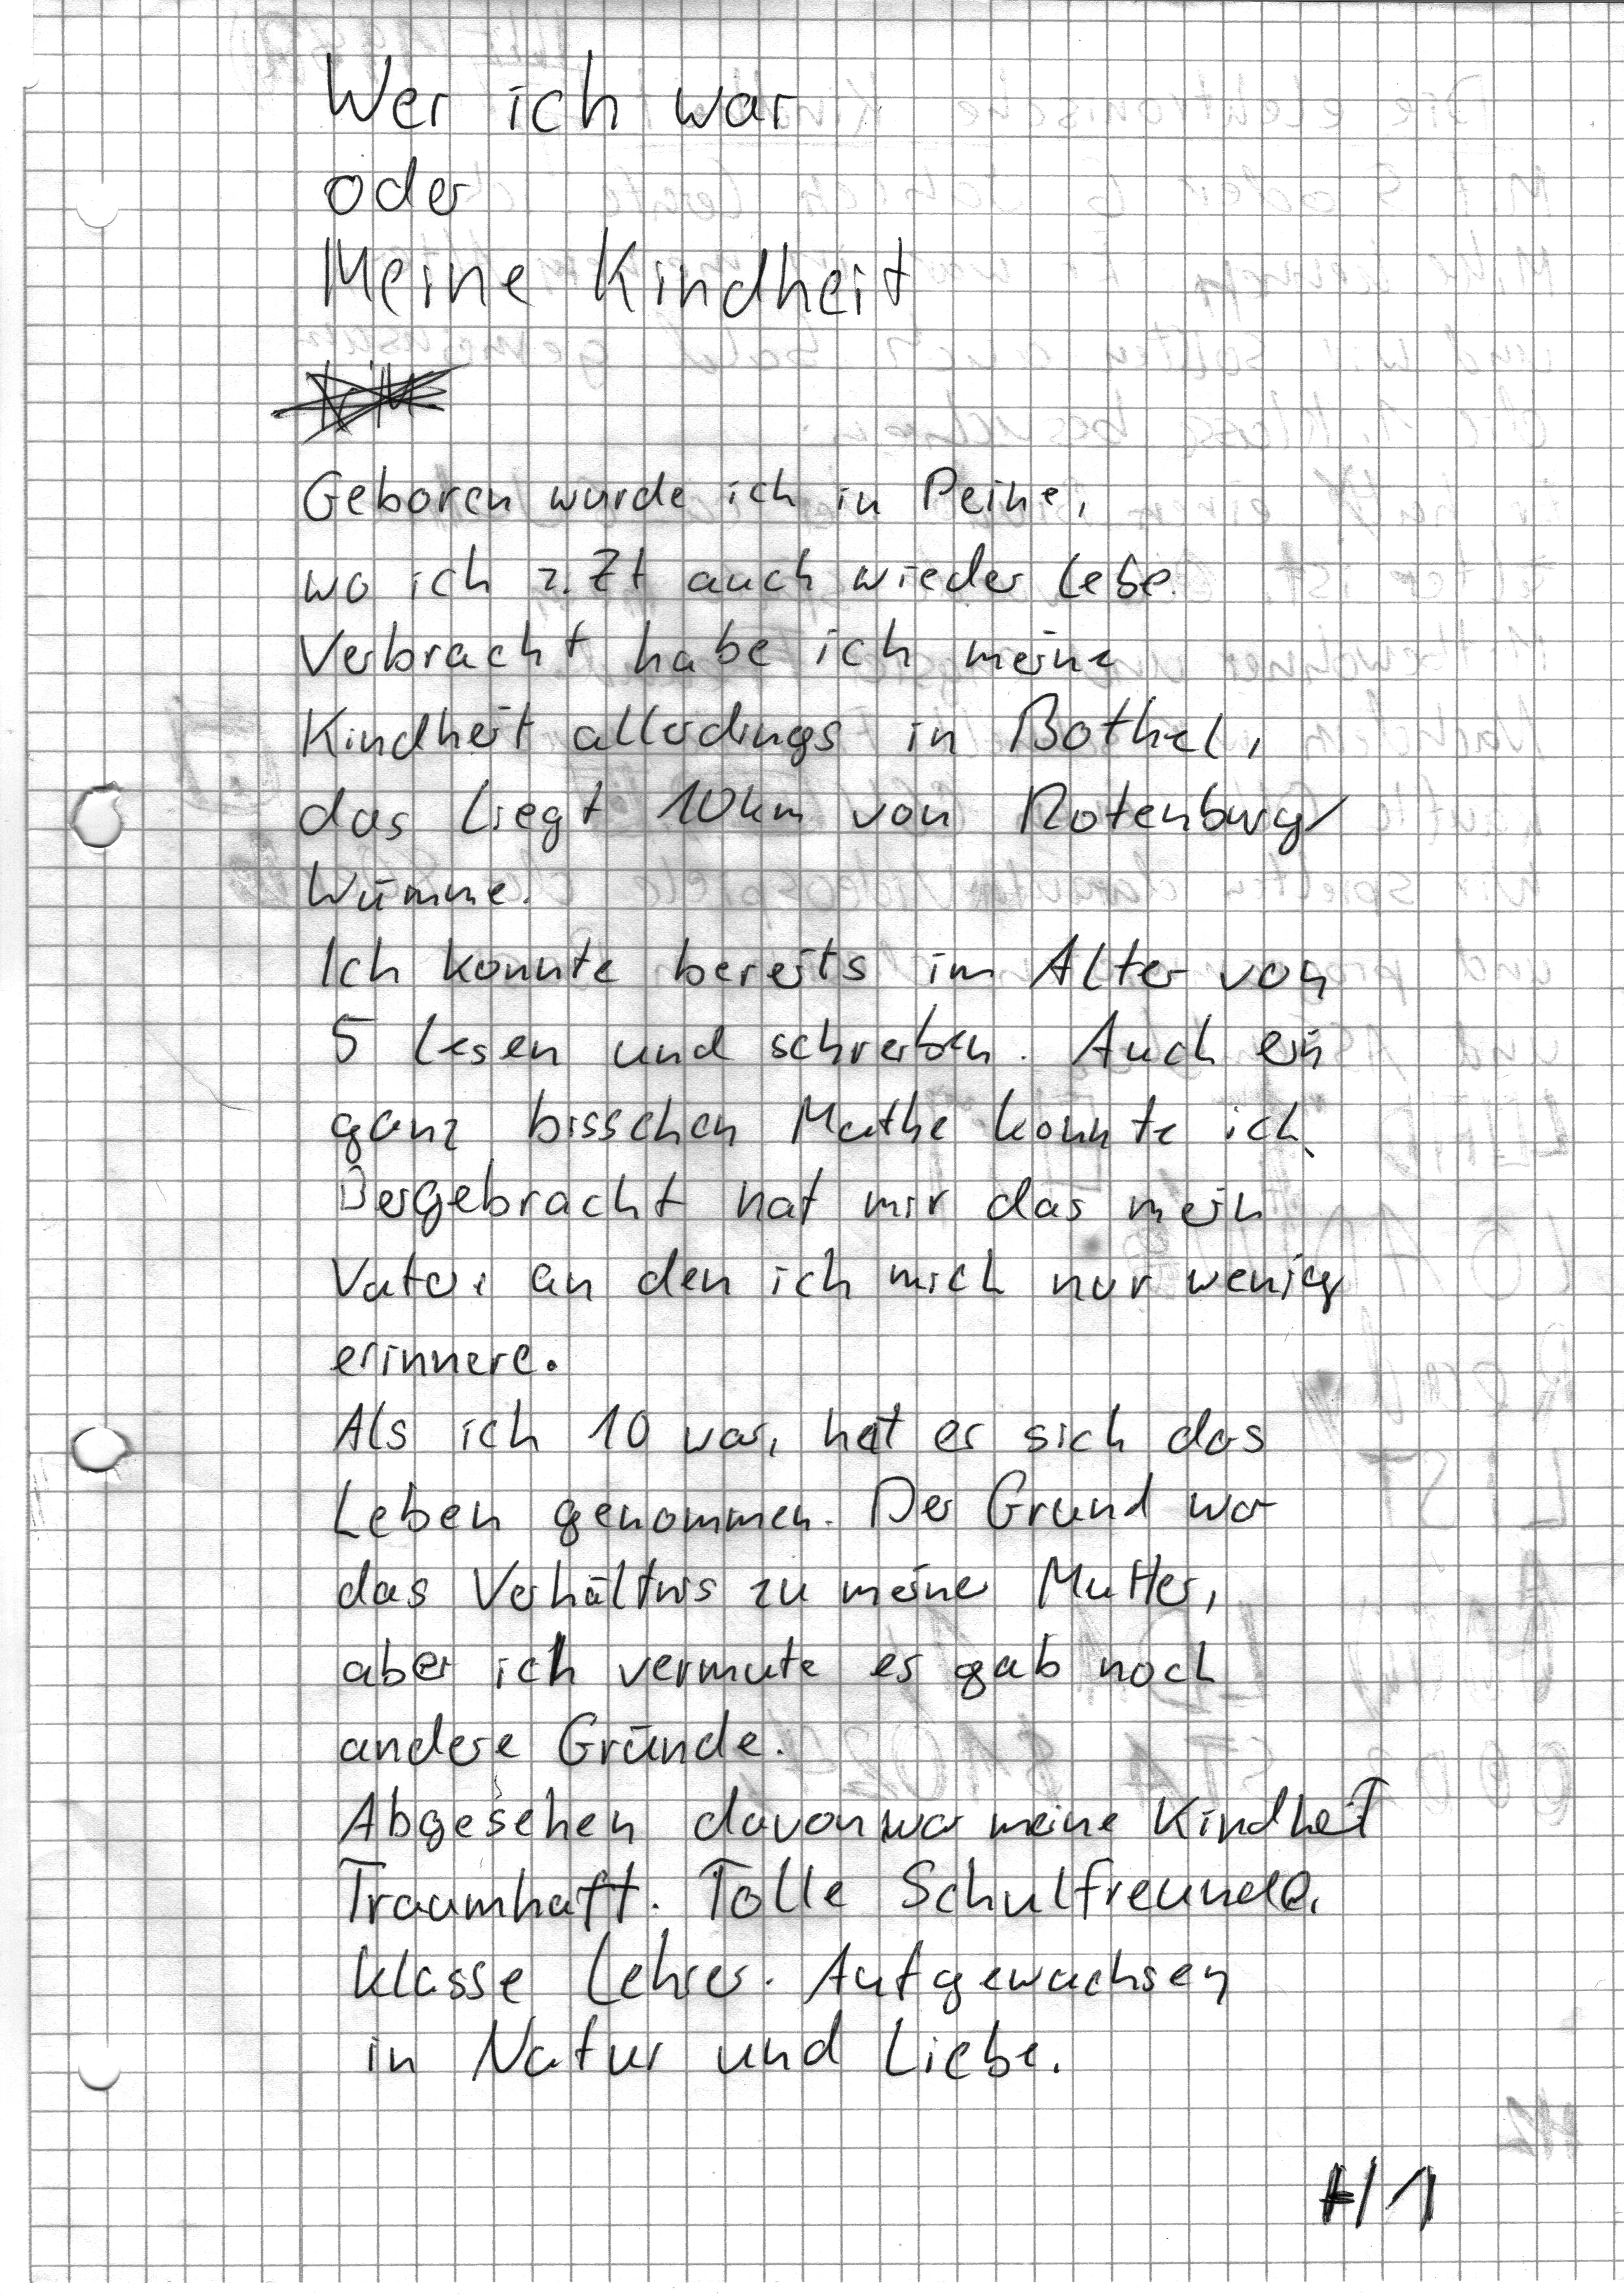 Wer ich war
oder
Meine Kindheit
Geboren wurde ich in Peine,
wo ich z.Zt auch wieder lebe.
Verbracht habe ich meine
Kindheit allerdings in Bothel,
das liegt 10km von Rotenburg/
Wümme.
Ich konnte bereits im Alter von
5 lesen und schreiben. Auch ein
ganz bisschen Mathe konnte ich.
Beigebracht hat mir das mein
Vater, an den ich mich nur wenig
erinnere.
Als ich 10 war, hat er sich das
Leben genommen. Der Grund war
das Verhältnis zu meiner Mutter,
aber ich vermute es gab noch
andere Gründe.
Abgesehen davon war meine Kindheit
Traumhaft. Tolle Schulfreunde,
klasse Lehrer. Aufgewachsen
in Natur und Liebe.